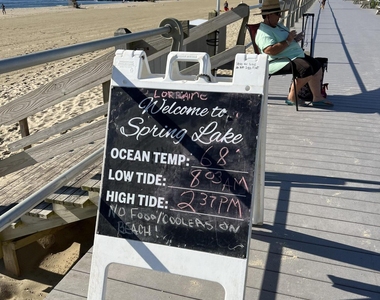 LORRAINE
Welcome to
Spring Lake
OCEAN TEMP: 68
LOW TIDE: 8:03 AM
HIGH TIDE: 2:37PM
NO FOOD/COOLERS ON
BEACH!